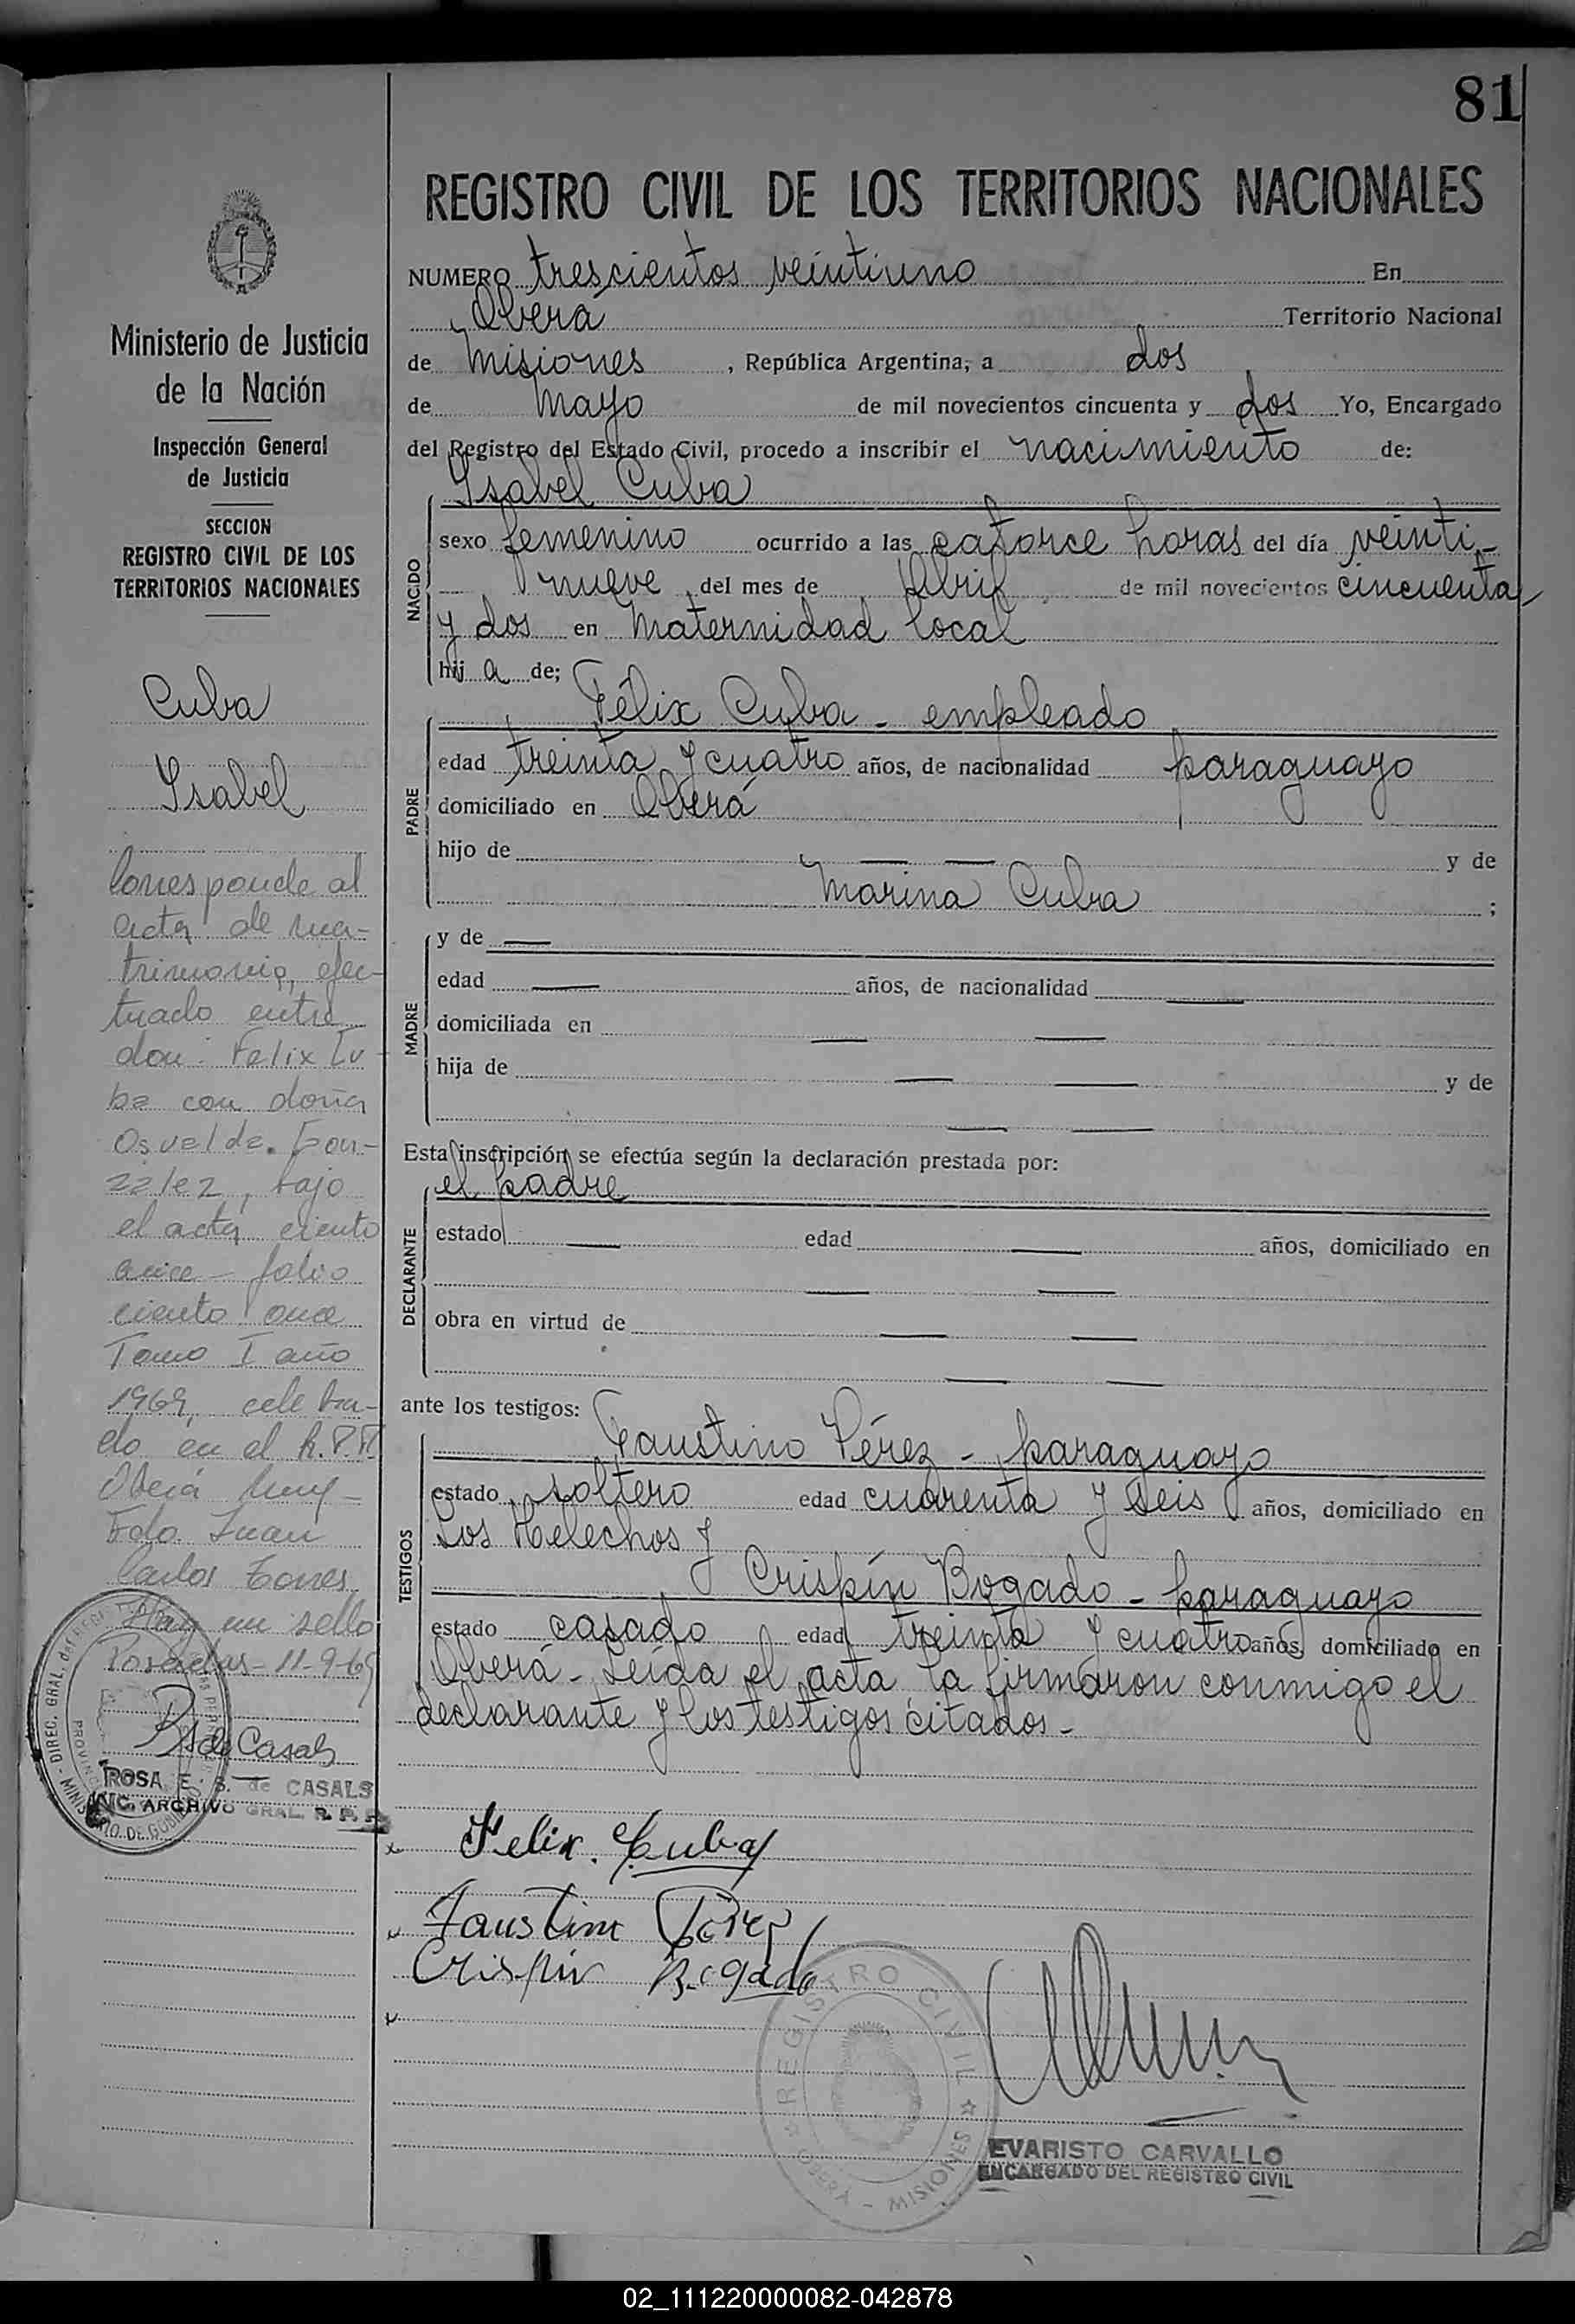 81
REGISTRO CIVIL DE LOS TERRITORIOS NACIONALES
NUMERO trescientos veintiuno En
Oberá Territorio Nacional
de Misiones, República Argentina, a dos
de Mayo de mil novecientos cincuenta y dos Yo, Encargado
del Registro del Estado Civil, procedo a inscribir el nacimiento de:
Ysabel Cuba
NACIDO
sexo femenino ocurrido a las catorce horas del día veinti-
nueve del mes de Abril de mil novecientos cincuenta
y dos en Maternidad local
hij a de;
Félix Cuba - empleado
PADRE
edad treinta y cuatro años, de nacionalidad paraguayo
domiciliado en Oberá
hijo de — — y de
Marina Cuba ;
MADRE
y de —
edad — años, de nacionalidad —
domiciliada en — —
hija de — — y de
— —
Esta inscripción se efectúa según la declaración prestada por:
el padre
DECLARANTE
estado — edad — años, domiciliado en
— —
obra en virtud de — —
— —
ante los testigos:
Faustino Pérez - paraguayo
TESTIGOS
estado soltero edad cuarenta y seis años, domiciliado en
Los Helechos y
Crispín Bogado - paraguayo
estado casado edad treinta y cuatro años, domiciliado en
Oberá - Leída el acta la firmaron conmigo el
declarante y los testigos citados -
Felix. Cuba
Faustino Pérez
Crispin Bogado
REGISTRO CIVIL
OBERA - MISIONES
EVARISTO CARVALLO
ENCARGADO DEL REGISTRO CIVIL
Ministerio de Justicia
de la Nación
Inspección General
de Justicia
SECCION
REGISTRO CIVIL DE LOS
TERRITORIOS NACIONALES
Cuba
Ysabel
Corresponde al
acta de ma-
trimonio, efec-
tuado entre
don: Felix Cu-
ba con doña
Osvalda. Gon-
zález, bajo
el acta ciento
once - folio
ciento once
Tomo I año
1969, celebra-
do en el R.P.P.
Oberá
Fdo. Juan
Carlos Torres
Hay un sello
Posadas - 11-9-69
de Casals
ROSA E. S. de CASALS
ARCHIVO GRAL. R. P. P.
02_111220000082-042878